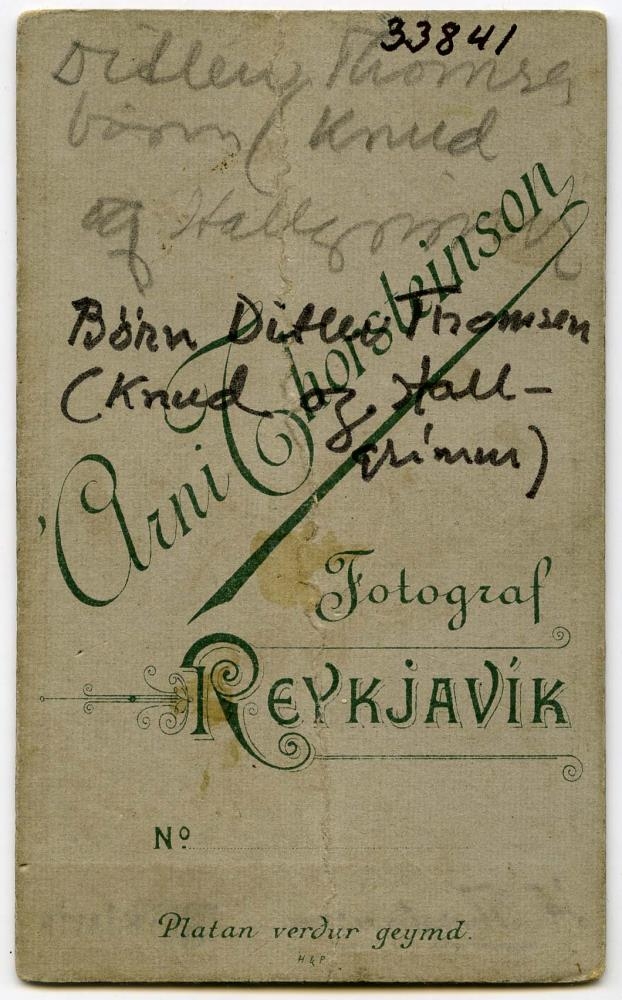 33841
Ditlev Thomsen
börn (Knud
og Hallgrímur
Börn Ditlev Thomsen
(Knud og Hall-
grímur)
Árni Thorsteinson
Fotograf
REYKJAVÍK
Nº
Platan verður geymd.
H & P